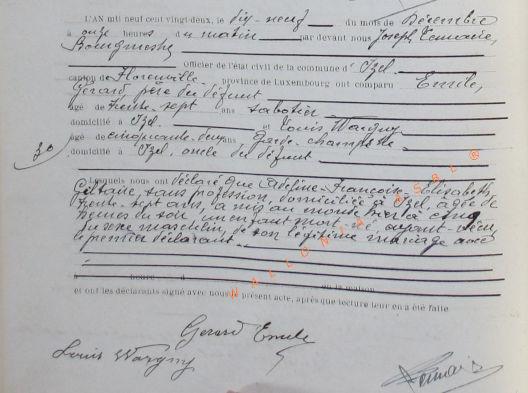 L'AN mil neuf cent vingt-deux, le dix-neuf du mois de Décembre
à onze heures du matin par devant nous Joseph
Bourgmestre
Officier de l'état civil de la commune d'Izel
canton de Florenville, province de Luxembourg ont comparu Emile
Gérard père du défunt
agé de trente-sept ans sabotier
domicilié à Izel et Louis Wargny
agé de cinquante-deux ans Garde-champêtre
domicilié à Izel, oncle du défunt
30
Lesquels nous ont déclaré que Adeline-Françoise-Elisabeth
sans profession domiciliée à Izel, âgée de
trente-sept ans, a mis au monde hier à cinq
heures du soir, un enfant mort-né, ayant vécu
du sexe masculin, de son légitime mariage avec
le premier déclarant
à heure d en la maison
et ont les déclarants signé avec nous le présent acte, après que lecture leur en a été faite
Gerard Emile
Louis Wargny
WALLONIA ASBL ®